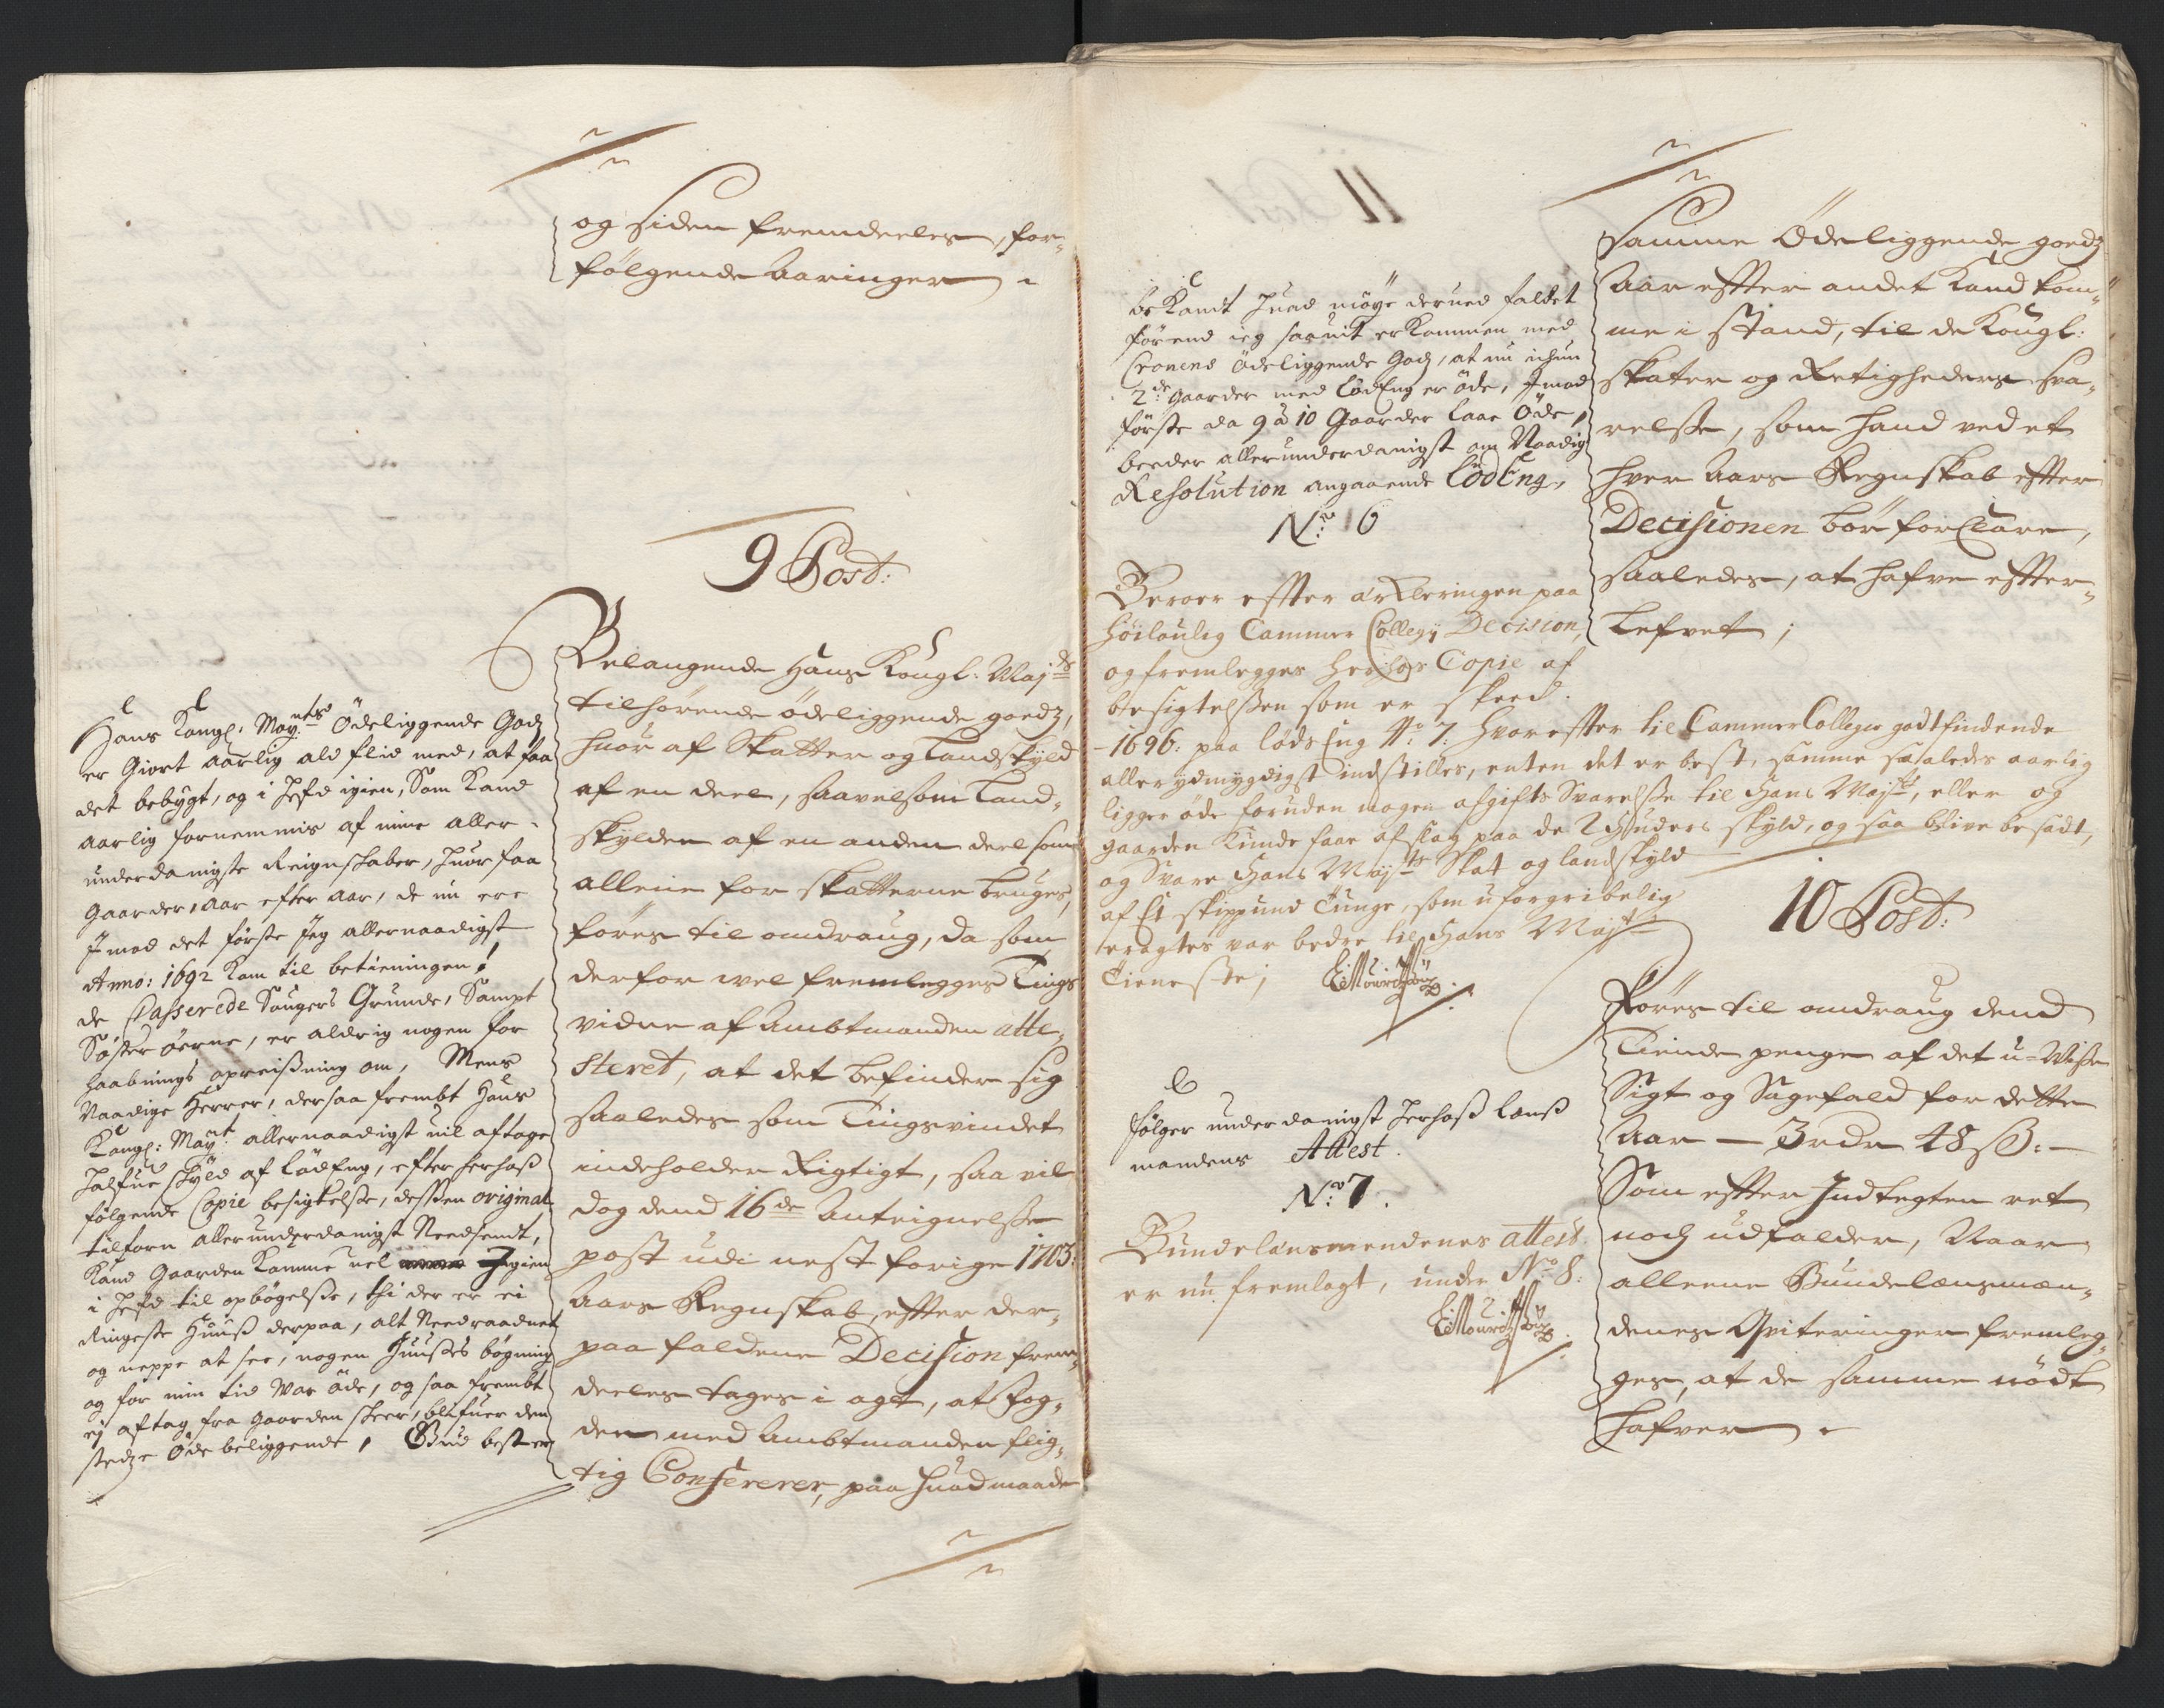 og siden fremdeeles, for-
følgende Aaringer.
9 Post:
Belangende Hans Kongl: Maj:ts
tilhørende ødeliggende goedz,
huor af Skatter og Landskyld
af en deel, saavelsom Land-
skylden af en anden deel som
alleine for skatterne bruges,
føres til omdraug, da som
derfor vel fremlegges Tings
vidne af Ambtmanden atte-
steret, at det befinder sig
saaledes som Tingsvindet
indeholder Rigtigt, saa vil
dog dend 16de Anteignelsse
post udi nest forige 1703:
Aars Regnskab, effter der-
paa faldene Decision frem-
deeles tages i agt, at Fog-
den med Ambtmanden flig-
tig Confererer, paa huad maade
Hans Kongl: May:ts Ødeliggende Godz
er Giort Aarlig ald flid med, at faa
det bebygt, og i Hefd igien, Som Kand
Aarlig fornemmis af mine aller-
underdanigste Reignskaber, huor faa
Gaarder, Aar efter Aar, de nu ere
Imod det første Jeg allernaadigst
Anno: 1692 kom til betieningen,
de Casserede Saugers Grunde, Sampt
øerne, er aldrig nogen for
haabnings opreissning om, Mens
Naadige Herrer, dersaa frembt Hans
Kongl: May:t allernaadigst vil aftage
halfue skyld af LødEng, efter herhoss
følgende Copie besigtelsse, dessen original
tilforn allerunderdanigst Needsendt,
Kand Gaarden komme vel igien
i Hefd til opbøgelsse, thi der er ei
Ringeste Huuss derpaa, alt Needraadnet
og neppe at see, nogen Huusses bøgning
og for min tid War øde, og saa frembt
ej aftag fra Gaarden skeer, blifuer den
stedze Øde beliggende, Gud best er
beKandt huad møye derued faldet
førend jeg saavit er kommen med
Cronens Ødeliggende Godz, at nu ichun
2de: Gaarder med LødEng er øde, Imod
første da 9 à 10 Gaarder laae Øde,
beeder allerunderdanigst om Naadig
Resolution angaaende LødEng,
No: 6
Beroer effter ærKleringen paa
Høilovlig Cammer Collegij Decision,
og fremlegges herhos Copie af
besigtelssen som er skeed.
-1696: paa løds Eng No: 7: Hvor effter til CammerCollegii godtfindende
aller ydmygdigst indstilles, enten det er best, samme saaledes aarlig
ligger øde foruden nogen afgifts Svarelsse til Hans Maj:ts, eller og
gaarden kunde faae afslag paa de 2 Huders skyld, og saa blive besadt,
og Svare Hans Maj:ts Skat og landskyld
af Et skippund Tunge, som uforgribelig
eragtes var bedre til Hans Maj:ts
Tieneste;
følger underdanigst herhoss lens
mandens Attest.
No: 7.
Bundelensmendenes attest
er nu fremlagt, under No 8:
Samme Ødeliggende goedz
Aar effter andet Kand kom-
me i stand, til de Kongl:
skater og Retigheders sva-
relsse, som hand ved et
hver Aars Regnskab effter
Decisionen bør forclare,
saaledes, at hafve effter-
lefvet;
10 Post:
Føres til omdraug dend
Tiende penge af det u-Visse
Sigt og Sagefald for dette
Aar — 3 rdr 48 s: —
Som effter Indtegten ret
noch udfalder, Naar
alleene Bundelensmen-
denes Qviteringer fremleg-
ges, at de samme nødt
hafver.